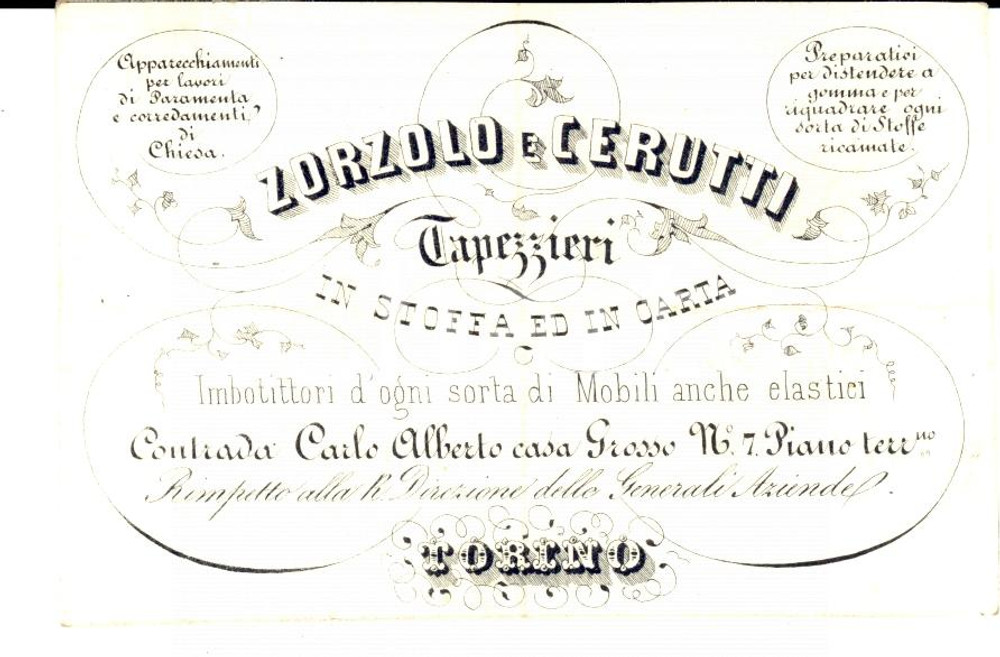 Apparecchiamenti
per lavori
di Paramenta
e corredamenti
di
Chiesa.
Preparativi
per distendere a
gomma e per
riquadrare ogni
sorta di Stoffe
ricamate.
ZORZOLO E CERUTTI
Tapezzieri
IN STOFFA ED IN CARTA
Imbotittori d'ogni sorta di Mobili anche elastici
Contrada Carlo Alberto casa Grosso N.º 7. Piano terr.no
Rimpetto alla R. Direzione delle Generali Aziende.
TORINO